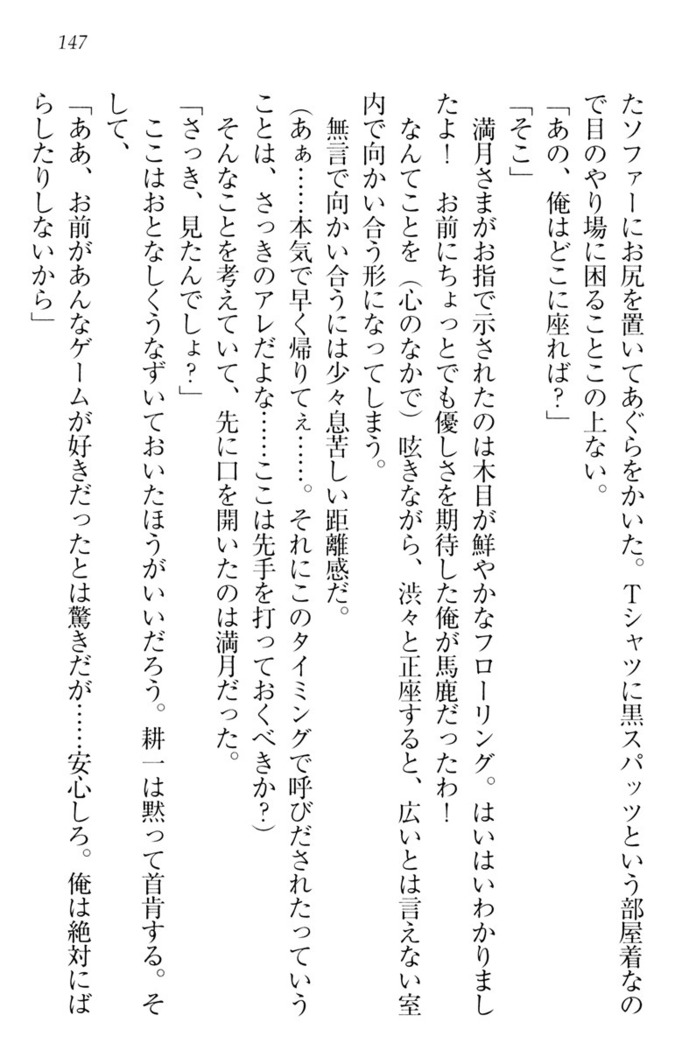 147
たソファーにお尻を置いてあぐらをかいた。Tシャツに黒スパッツという部屋着なの
で目のやり場に困ることこの上ない。
「あの、俺はどこに座れば？」
「そこ」
　満月さまがお指で示されたのは木目が鮮やかなフローリング。はいはいわかりまし
たよ！　お前にちょっとでも優しさを期待した俺が馬鹿だったわ！
　なんてことを（心のなかで）呟きながら、渋々と正座すると、広いとは言えない室
内で向かい合う形になってしまう。
　無言で向かい合うには少々息苦しい距離感だ。
（あぁ……本気で早く帰りてぇ……。それにこのタイミングで呼びだされたっていう
ことは、さっきのアレだよな……ここは先手を打っておくべきか？）
　そんなことを考えていて、先に口を開いたのは満月だった。
「さっき、見たんでしょ？」
　ここはおとなしくうなずいておいたほうがいいだろう。耕一は黙って首肯する。そ
して、
「ああ、お前があんなゲームが好きだったとは驚きだが……安心しろ。俺は絶対にば
らしたりしないから」